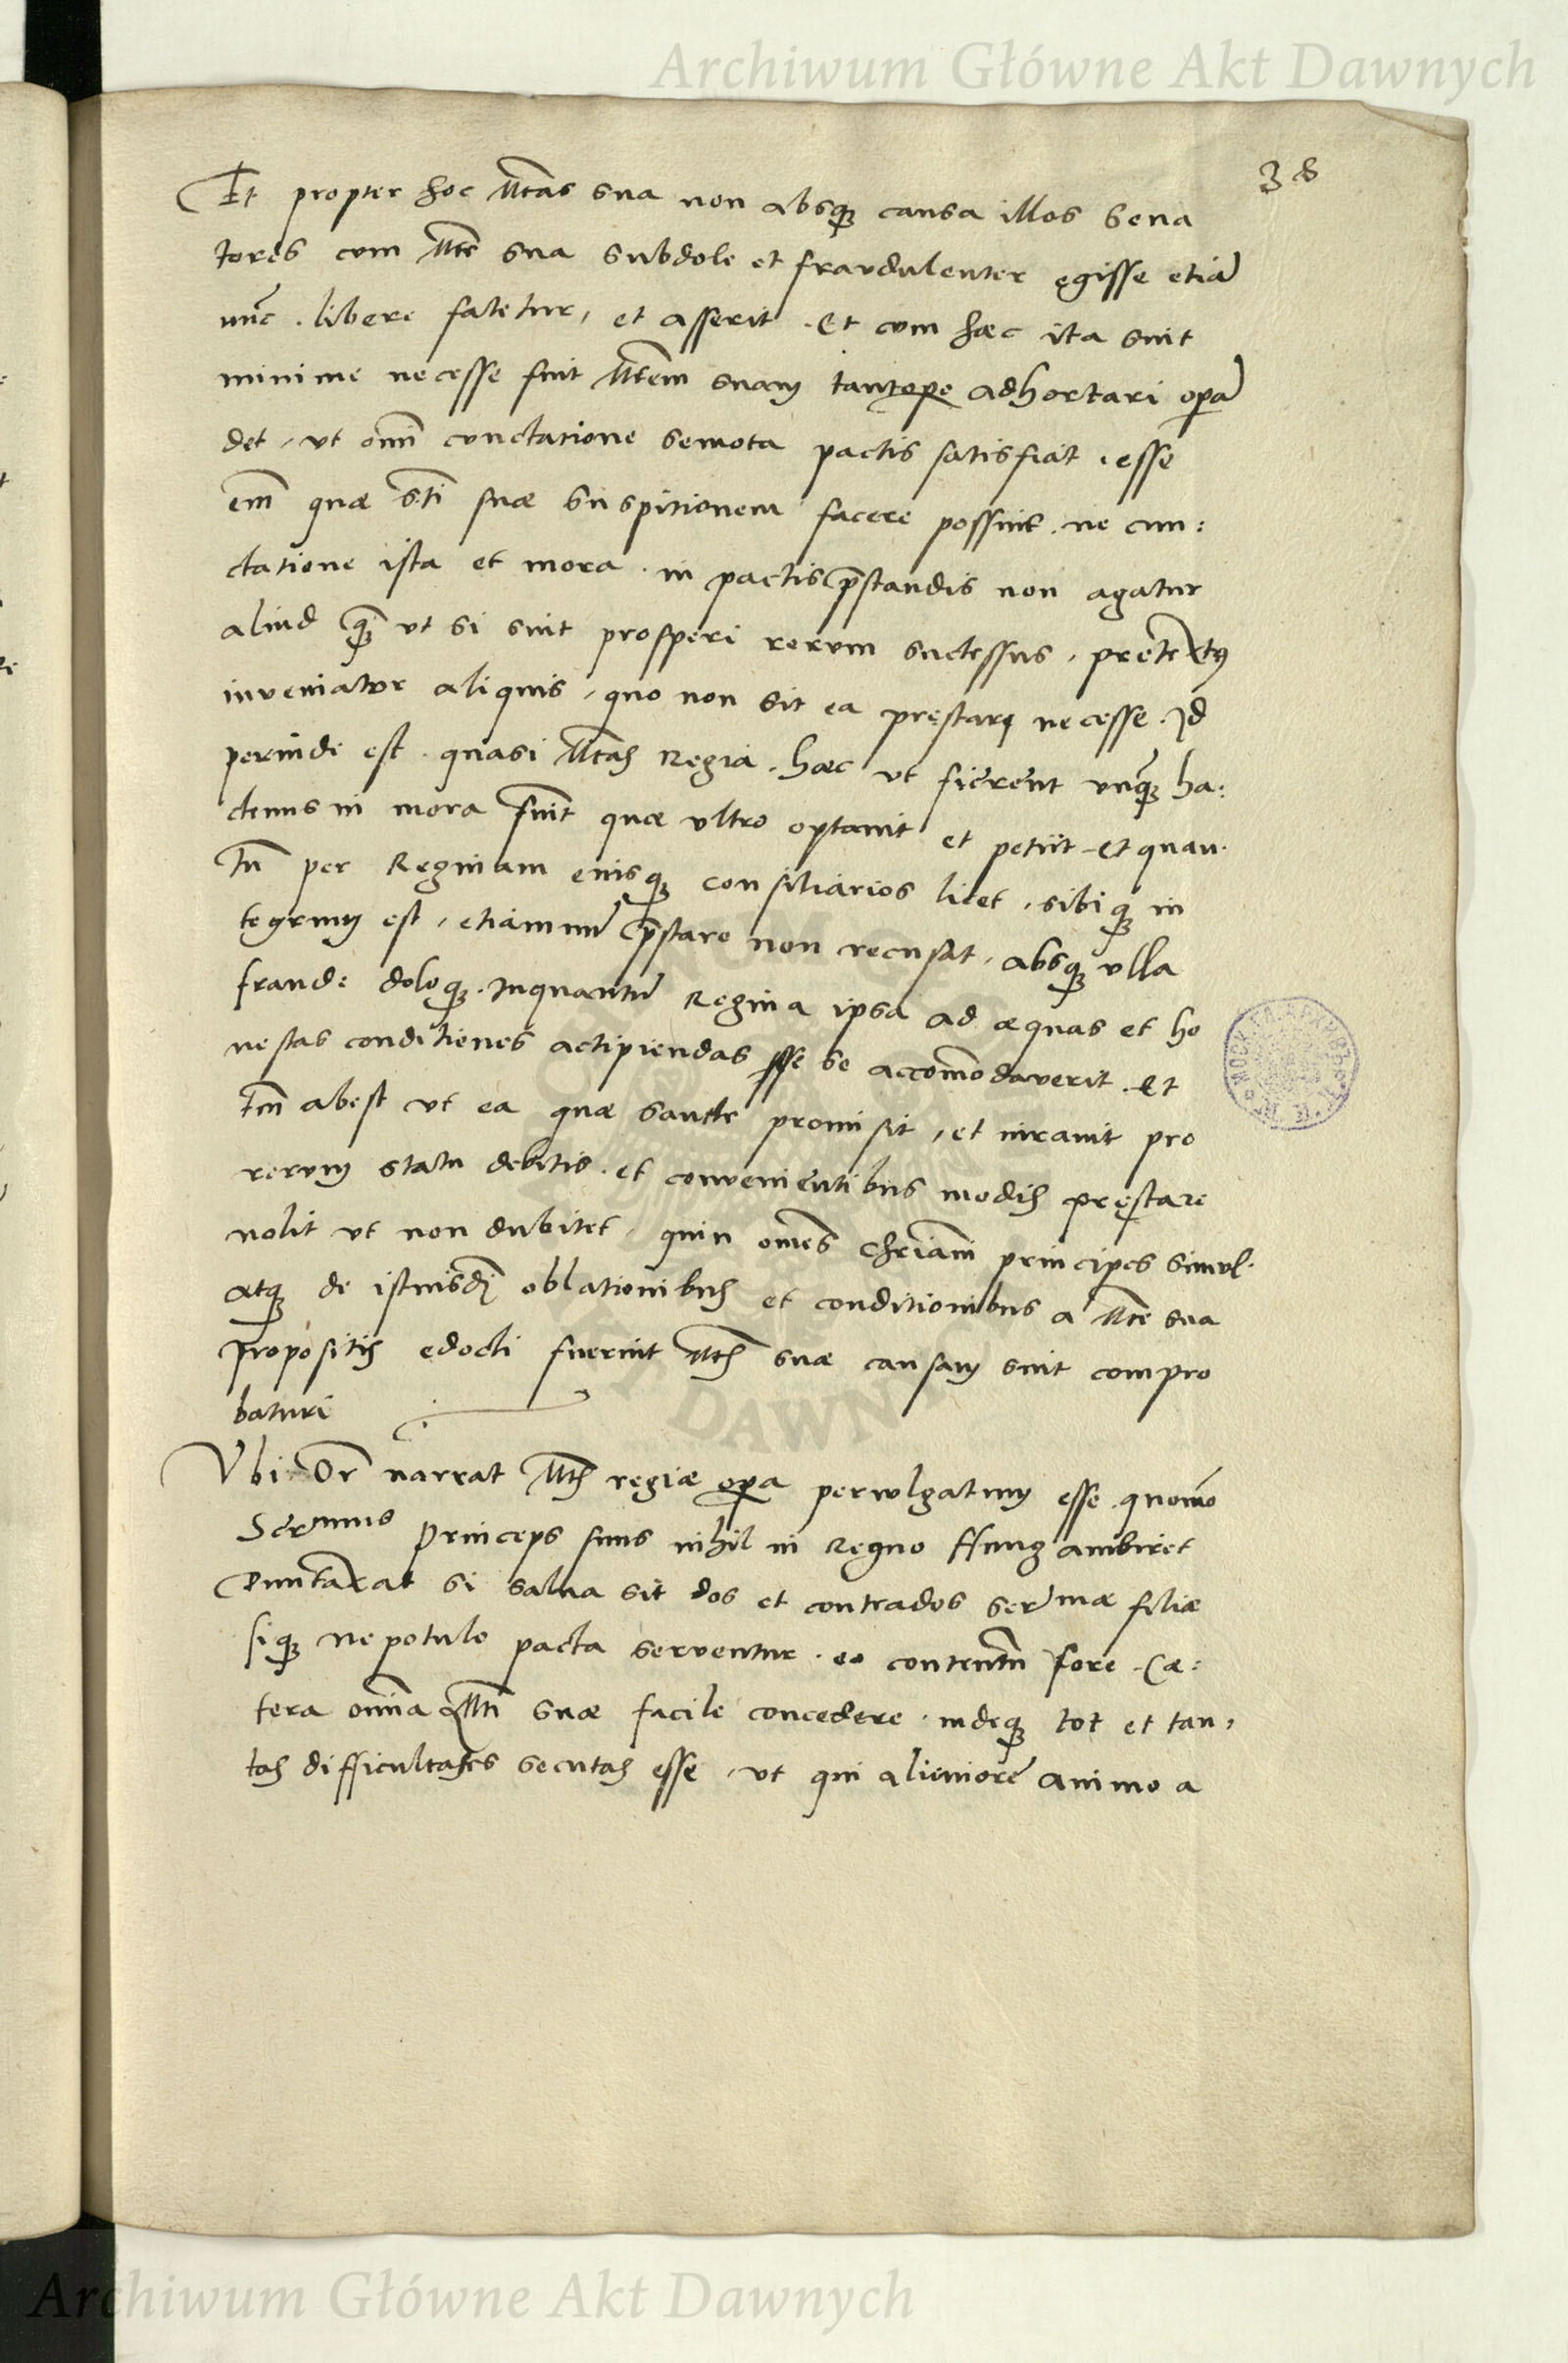 Archiwum Główne Akt Dawnych
38
Et propter hoc Mtas sua non absq; causa illos sena
tores cum Mte sua subdole et fraudulenter egisse etiã
nũc . libere fatetur, et asserit . Et cum haec ita sint
minime necesse fuit Mtem suam tantope adhortari opã
det, ut omĩ cunctatione semota pactis satisfiat . esse
em̃ quae Sti suae suspitionem facere possint . ne cun:
ctatione ista et mora . in pactis p̃standis non agatur
aliud q̃ ut si sint prosperi rerum successus, pretextus
inveniatur aliquis, quo non sit ea prestari necesse . Id
perinde est . quasi Mtas Regia . haec ut fierent unq̃ ha:
ctenus in mora fuit quae ultro optavit et petiit . et quan.
tũ per Reginam eiusq; consiliarios licet, sibiq; in
tegrum est, etiamnũ p̃stare non recusat, absq; ulla
fraude doloq; . Inquantũ Regina ipsa ad aequas et ho
nestas conditiones accipiendas sse se accom̃odaverit . Et
tm̃ abest ut ea quae sancte promisit, et iuravit pro
rerum statu debitis . et convenientibus modis prestare
nolit ut non dubitet, quin omẽs Chriãni principes simul.
atq; de istiusdi oblationibus et conditionibus a Mte sua
propositis edocti fuerint Mtis suae causam sint compro
baturi
Ubi Or̃ narrat Mtis regiae opa pervulgatum esse . quom̃o
Sermus Princeps suus nihil in Regno Hung ambiret
Duntaxat si salva sit dos et contrados Sermae filiae
siq; nepotulo pacta serventur . eo contentũ fore . Cae:
tera om̃ia Mti suae facile concedere . indeq; tot et tan,
tas difficultates secutas esse, ut qui alieniorẽ animo a
Archiwum Główne Akt Dawnych